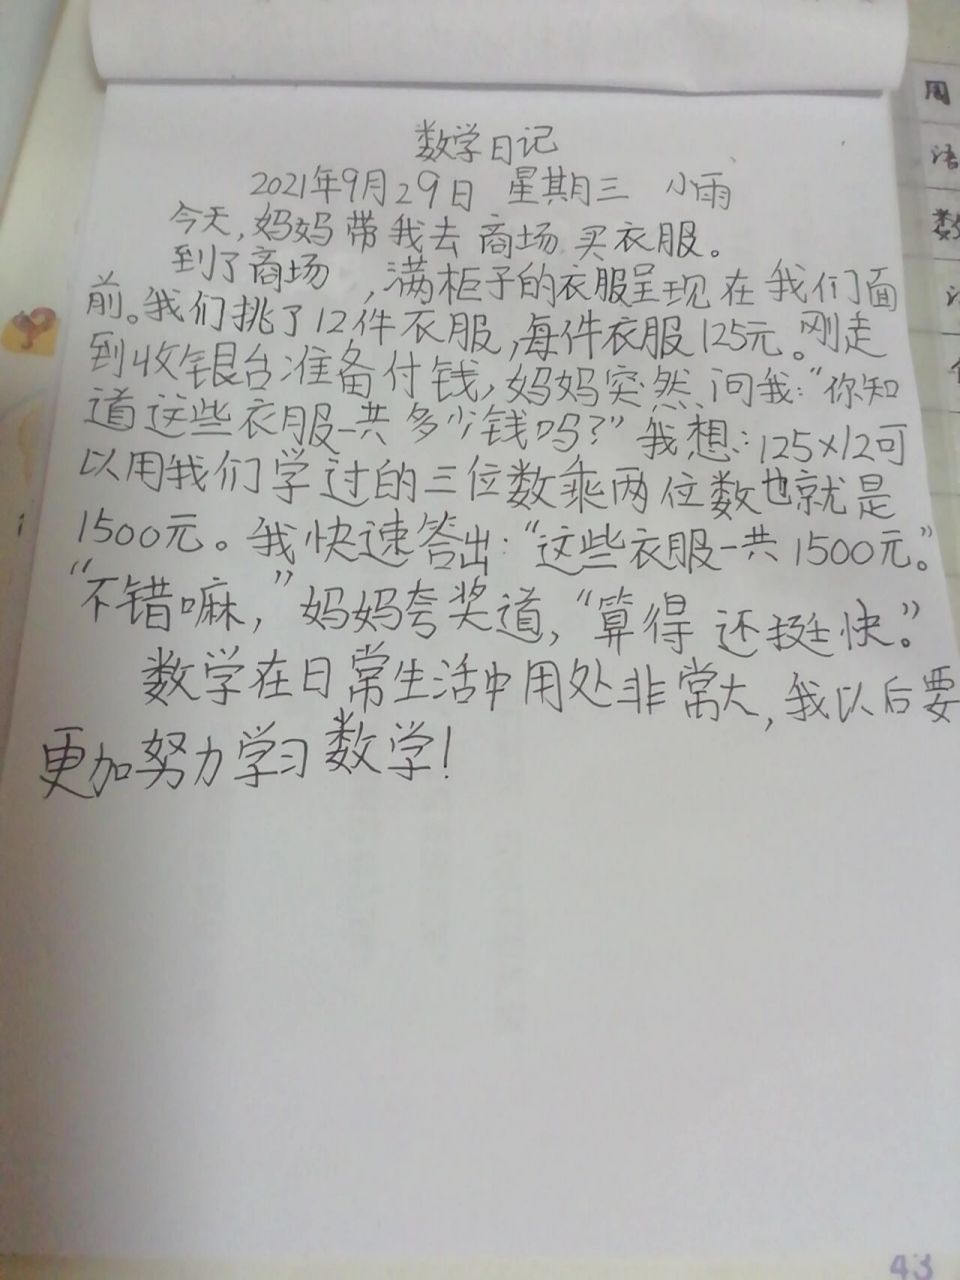 数学日记
2021年9月29日 星期三 小雨
今天,妈妈带我去商场买衣服。
到了商场,满柜子的衣服呈现在我们面
前。我们挑了12件衣服,每件衣服125元。刚走
到收银台准备付钱,妈妈突然问我:“你知
道这些衣服一共多少钱吗?”我想:125×12可
以用我们学过的三位数乘两位数也就是
1500元。我快速答出:“这些衣服一共1500元。”
“不错嘛,”妈妈夸奖道,“算得还挺快。”
数学在日常生活中用处非常大,我以后要
更加努力学习数学!
周
数
43